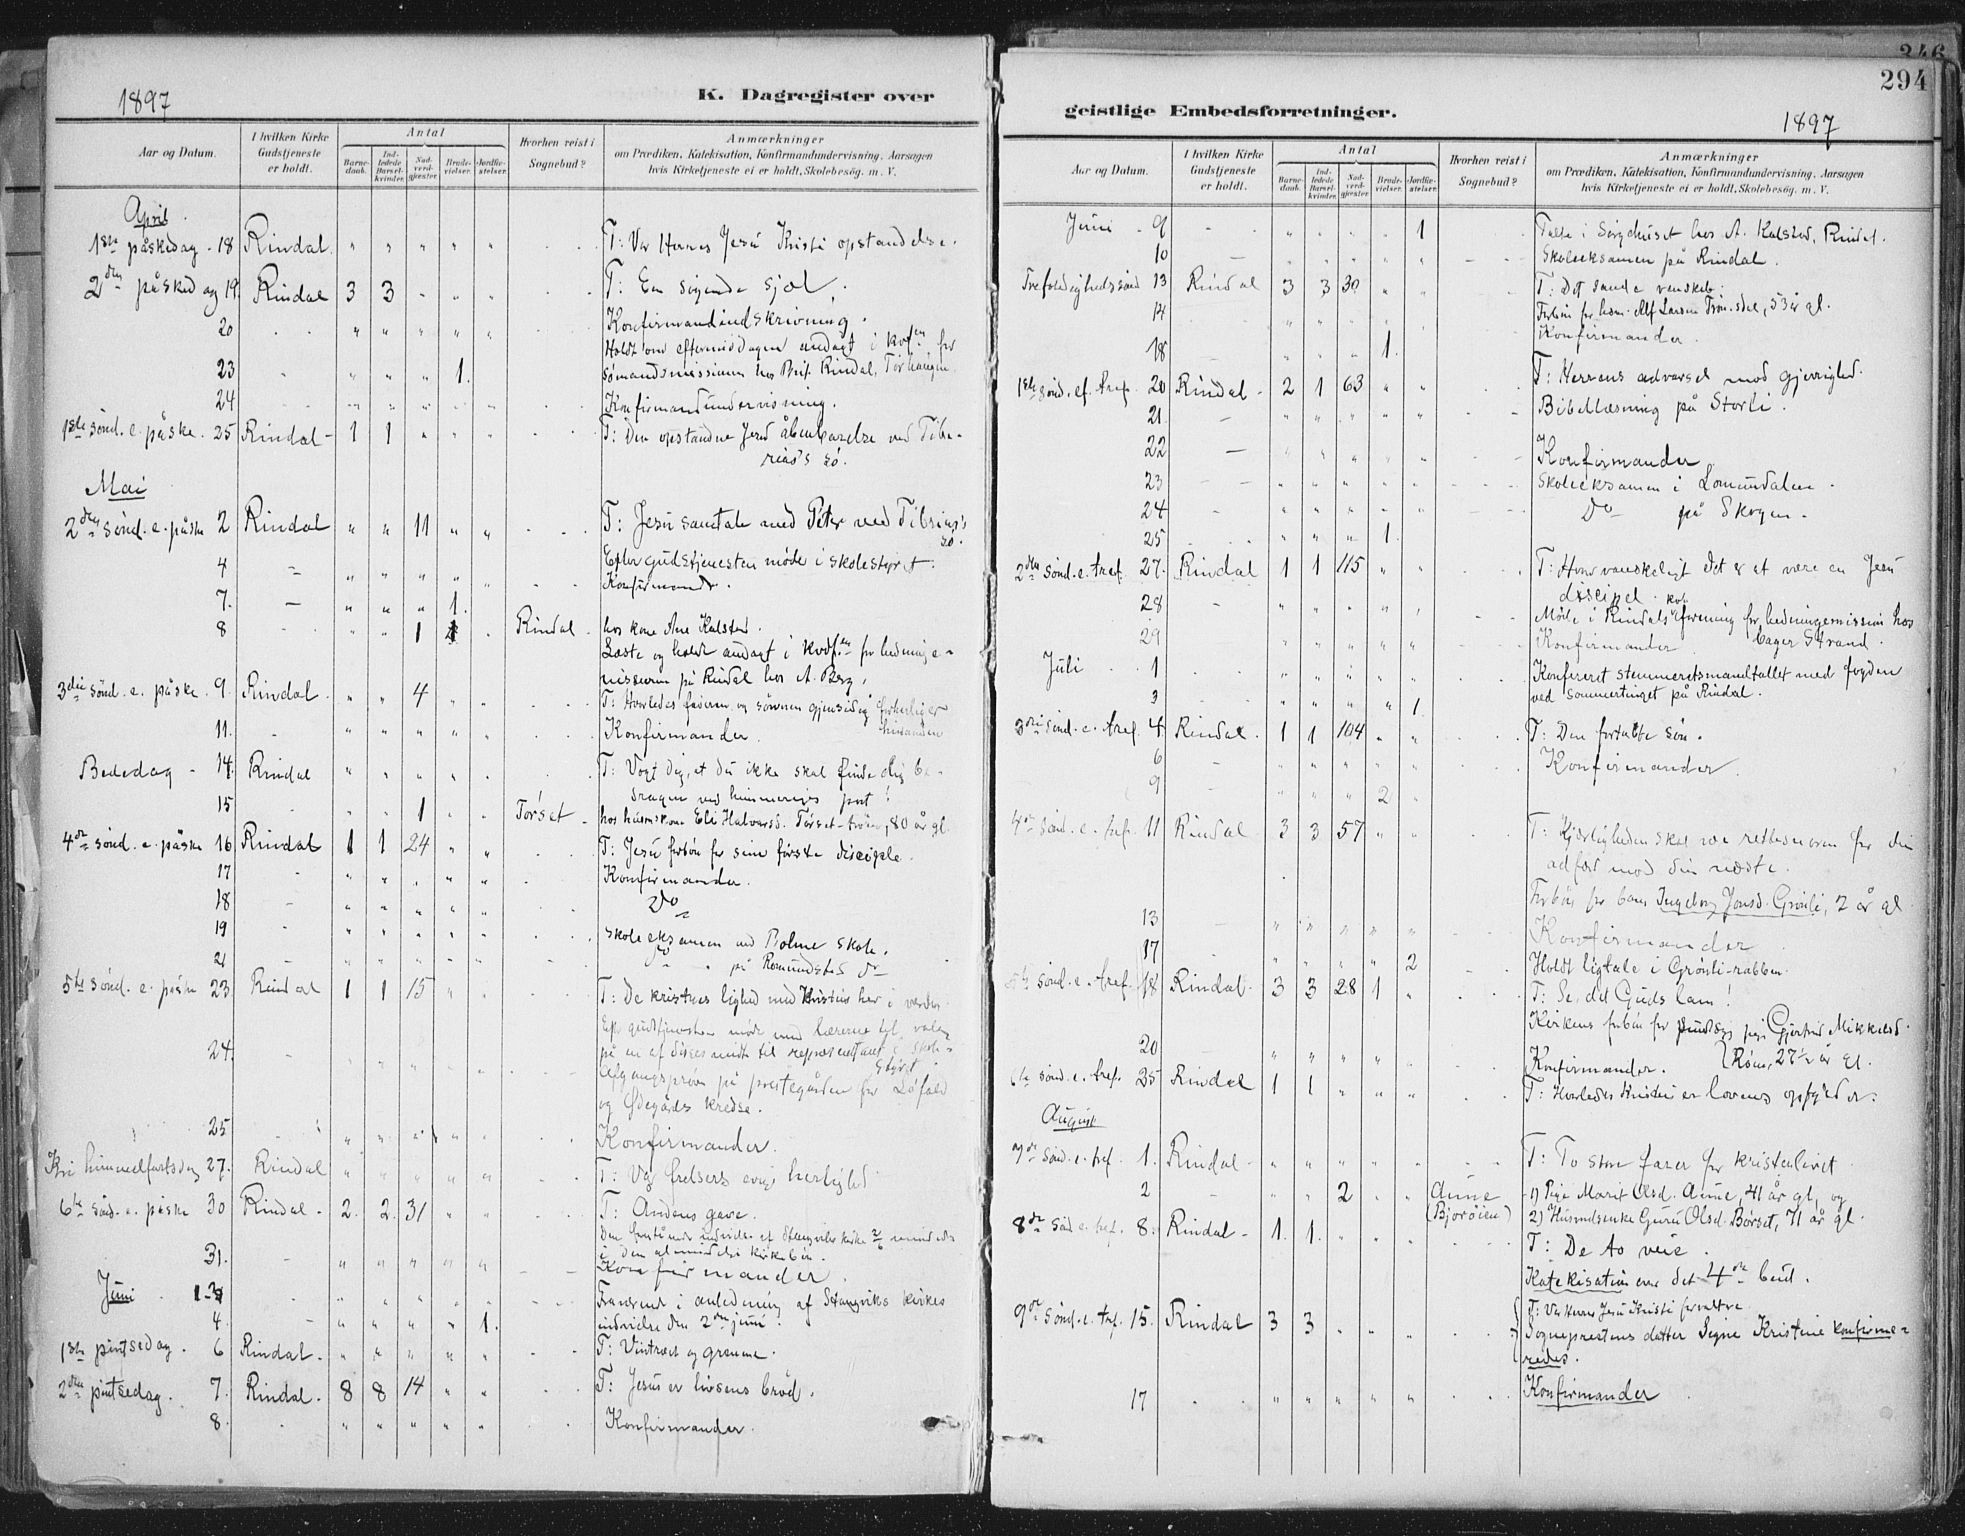 1897
K. Dagregister over
Aar og Datum.
I hvilken Kirke Gudstjeneste er holdt.
Antal
Barne-daab.
Ind-ledede Barsel-kvinder.
Nad-verd-gjæster.
Brude-vielser.
Jordfæ-stelser.
Hvorhen reist i Sognebud?
Anmærkninger
om Prædiken, Katekisation, Konfirmandundervisning, Aarsagen
hvis Kirketjeneste ei er holdt, Skolebesög. m. V.
April.
1ste påskedag - 18 Rindal. " " " " " T: Vor Herres Jesu Kristi opstandelse.
2den påskedag 19. Rindal 3 3 " " " T: En søgende sjæl.
20 " " " " " Konfirmandindskrivning.
Holdt om eftermiddagen andagt i kvf.en for
23 " " " 1. sømandsmissionen hos Rindal,
24 Konfirmandundervisning.
1ste sønd. e. påske. 25 Rindal - 1 1 " " " T: Den opstandne Jesu åbenbarelse ved Tibe-
rias's sø.
Mai
2den sønd. e. påske 2 Rindal " " 11 " " T: Jesu samtale med Peter ved Tibrias's
sø.
Efter gudstjenesten møde i skolestyret.
4 - " " " " " Konfirmander.
7. - " " " 1.
8 " " 1 " Rindal - hos kone Ane Kalstad.
Læste og holdt andagt i kvdf.en for hedninge-
missionen på Rindal hos A. Berg.
3die sønd. e. påske. 9. Rindal. " " 4 " " T: Hvorledes faderen og sønnen gjensidig
hinanden
11. " " " " " Konfirmander.
Bededag - 14. Rindal " " " " " T: Vogt dig, at du ikke skal finde dig be-
dragen ved himmeriges port!
15 " " 1 " " Tørset - hos huskone Eli Halvarsd. Tørset-trøen, 80 år gl.
4de sønd. e. påske 16 Rindal 1 1 24 " " T: Jesu forbøn for sine første disciple.
17 " " " " " Konfirmander.
18 - " " " " " Do
19 " " " " " Skoleeksamen ved Bolme skole.
21 - " " " " " do på Romundstad
5te sønd. e. påske 23. Rindal 1 1 15 " " T: De kristnes lighed med Kristus her i verden
Eft. gudstjenesten møde med lærerne til valg
24. på en af disses midte til repræsentant i skole-
styret.
Afgangsprøve på prestegården for Løfald
og Ødegårds kredse.
25 " " " " " Konfirmander.
Kri himmelfartsdag 27. Rindal " " " " " T: Vor frelsers evige herlighed
6te sønd. e. påske 30 Rindal - 2. 2. 31 " " T: Åndens gave.
31. - " " " " " Konfirmander.
Juni 1-3 Fraværende i anledning af Stangviks kirkes
4. " " " " 1. indvielse den 2den juni.
1ste pintsedag. 6 Rindal. " " " " " T: Vintræet og grenene.
2den pintsedag. 7. Rindal. 8 8 14 " " T: Jesus er livsens brød.
8. " " " " " Konfirmander.
346
294
geistlige Embedsforretninger.
1897
Aar og Datum.
I hvilken Kirke Gudstjeneste er holdt.
Antal
Barne-daab.
Ind-ledede Barsel-kvinder.
Nad-verd-gjæster.
Brude-vielser.
Jordfæ-stelser.
Hvorhen reist i Sognebud?
Anmærkninger
om Prædiken, Katekisation, Konfirmandundervisning, Aarsagen
hvis Kirketjeneste ei er holdt, Skolebesög. m. V.
Juni - 9 - " " " " 1 Talte i Sørgehuset hos A. Kalstad, Rindal.
10 - " " " " " Skoleeksamen på Rindal.
Trefoldighedssønd 13 Rindal 3 3 30 " " T: Det sande venskab.
14 Forbøn for husm. Alf Larsen 53 år gl.
Konfirmander.
18 - " " " 1.
1ste sønd. ef. tref. 20 Rindal - 2 1 63 " " T: Herrens advarsel mod gjerrighed.
21 - " " " " " Bibellæsning på Storli.
22 - " " " " " Konfirmander
23 - " " " " " Skoleeksamen i Lomundalen.
24 - " " " " " Do på Skogen.
25 " " " 1.
2den sønd. e. tref. 27. Rindal 1 1 115 " " T: Hvor vanskeligt det er at være en Jesu
discipel.
28 - " " " " " Møde i Rindals kvf. forening for hedningemission hos
29 " " " " " Konfirmander Bager Strand.
Juli 1 Konfereret stemmeretsmandtallet med fogden
3 " " " " 1. ved sommertinget på Rindal.
3die sønd. e. tref. 4. Rindal. 1 1 104 " " T: Den fortabte søn.
6 " " " " " Konfirmander.
9 " " " 2 "
4de sønd. e. tref. 11 Rindal 3 3 57 " " T: Kjærligheden skal være rettesnoren for din
adfærd mod din næste.
Forbøn for barn Ingeborg Jonsd. Grønli, 2 år gl
13 - " " " " " Konfirmander
17 " " " " 2 Holdt ligtale i Grønli-rabben.
5te sønd. e. tref. 18 Rindal. 3 3 28 1 " T: Se, det Guds lam!
Kirkens forbøn for pige Gjertrud Mikkelsd.
20 - " " " " " Konfirmander. Røen, 27½ år gl.
6te sønd. e. tref. 25 Rindal 1 1 " " " T: Hvorledes Kristus er lovens opfylder.
August
7de sønd. e. tref. 1. Rindal - " " " " " T: To store farer for kristenlivet.
2 - " " 2 " " Aune (Bjorøien) 1) Pige Marit Olsd. Aune, 41 år gl, og
2) Husmdsenke Guru Olsd. Børset, 71 år gl.
8de sønd e. tref. 8. Rindal - 1. 1. " " " T: De to veie.
Katekisation over det 4de bud.
9de sønd. e. tref. 15. Rindal 3 3 " " " T: Vor Herres Jesu Kristi forvaltre
Sogneprestens datter Signe Kristine konfirme-
redes.
17 " " " " " Konfirmander